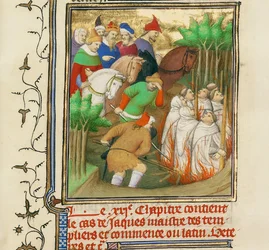 e xxje. Chapitre contient
le cas de Jaques maistre des tem
pliers et commence ou latin. Dete